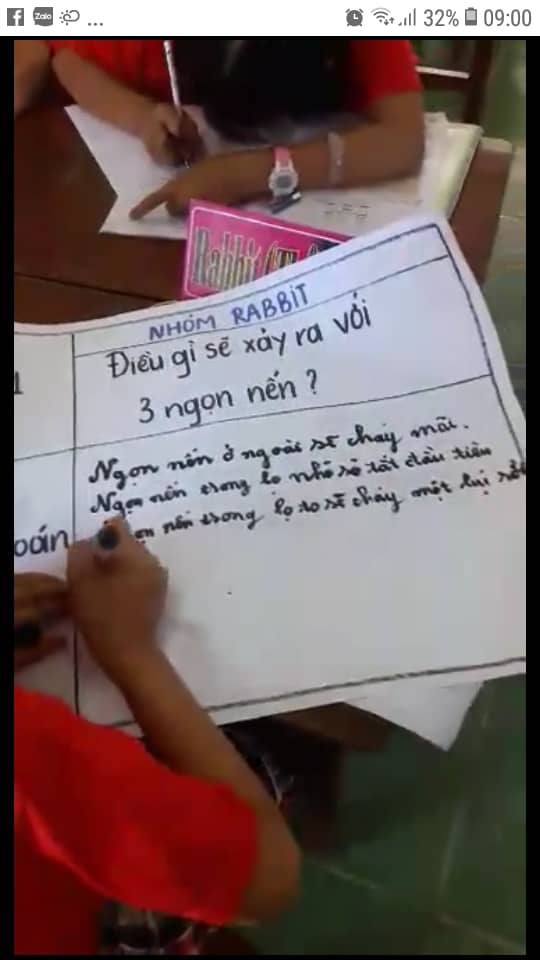 Zalo ... 32% 09:00
Rabbit
NHÓM RABBIT
Điều gì sẽ xảy ra với
3 ngọn nến?
Ngọn nến ở ngoài sẽ cháy mãi.
Ngọn nến trong lọ nhỏ sẽ tắt đầu tiên
nến trong lọ to sẽ cháy một
oán